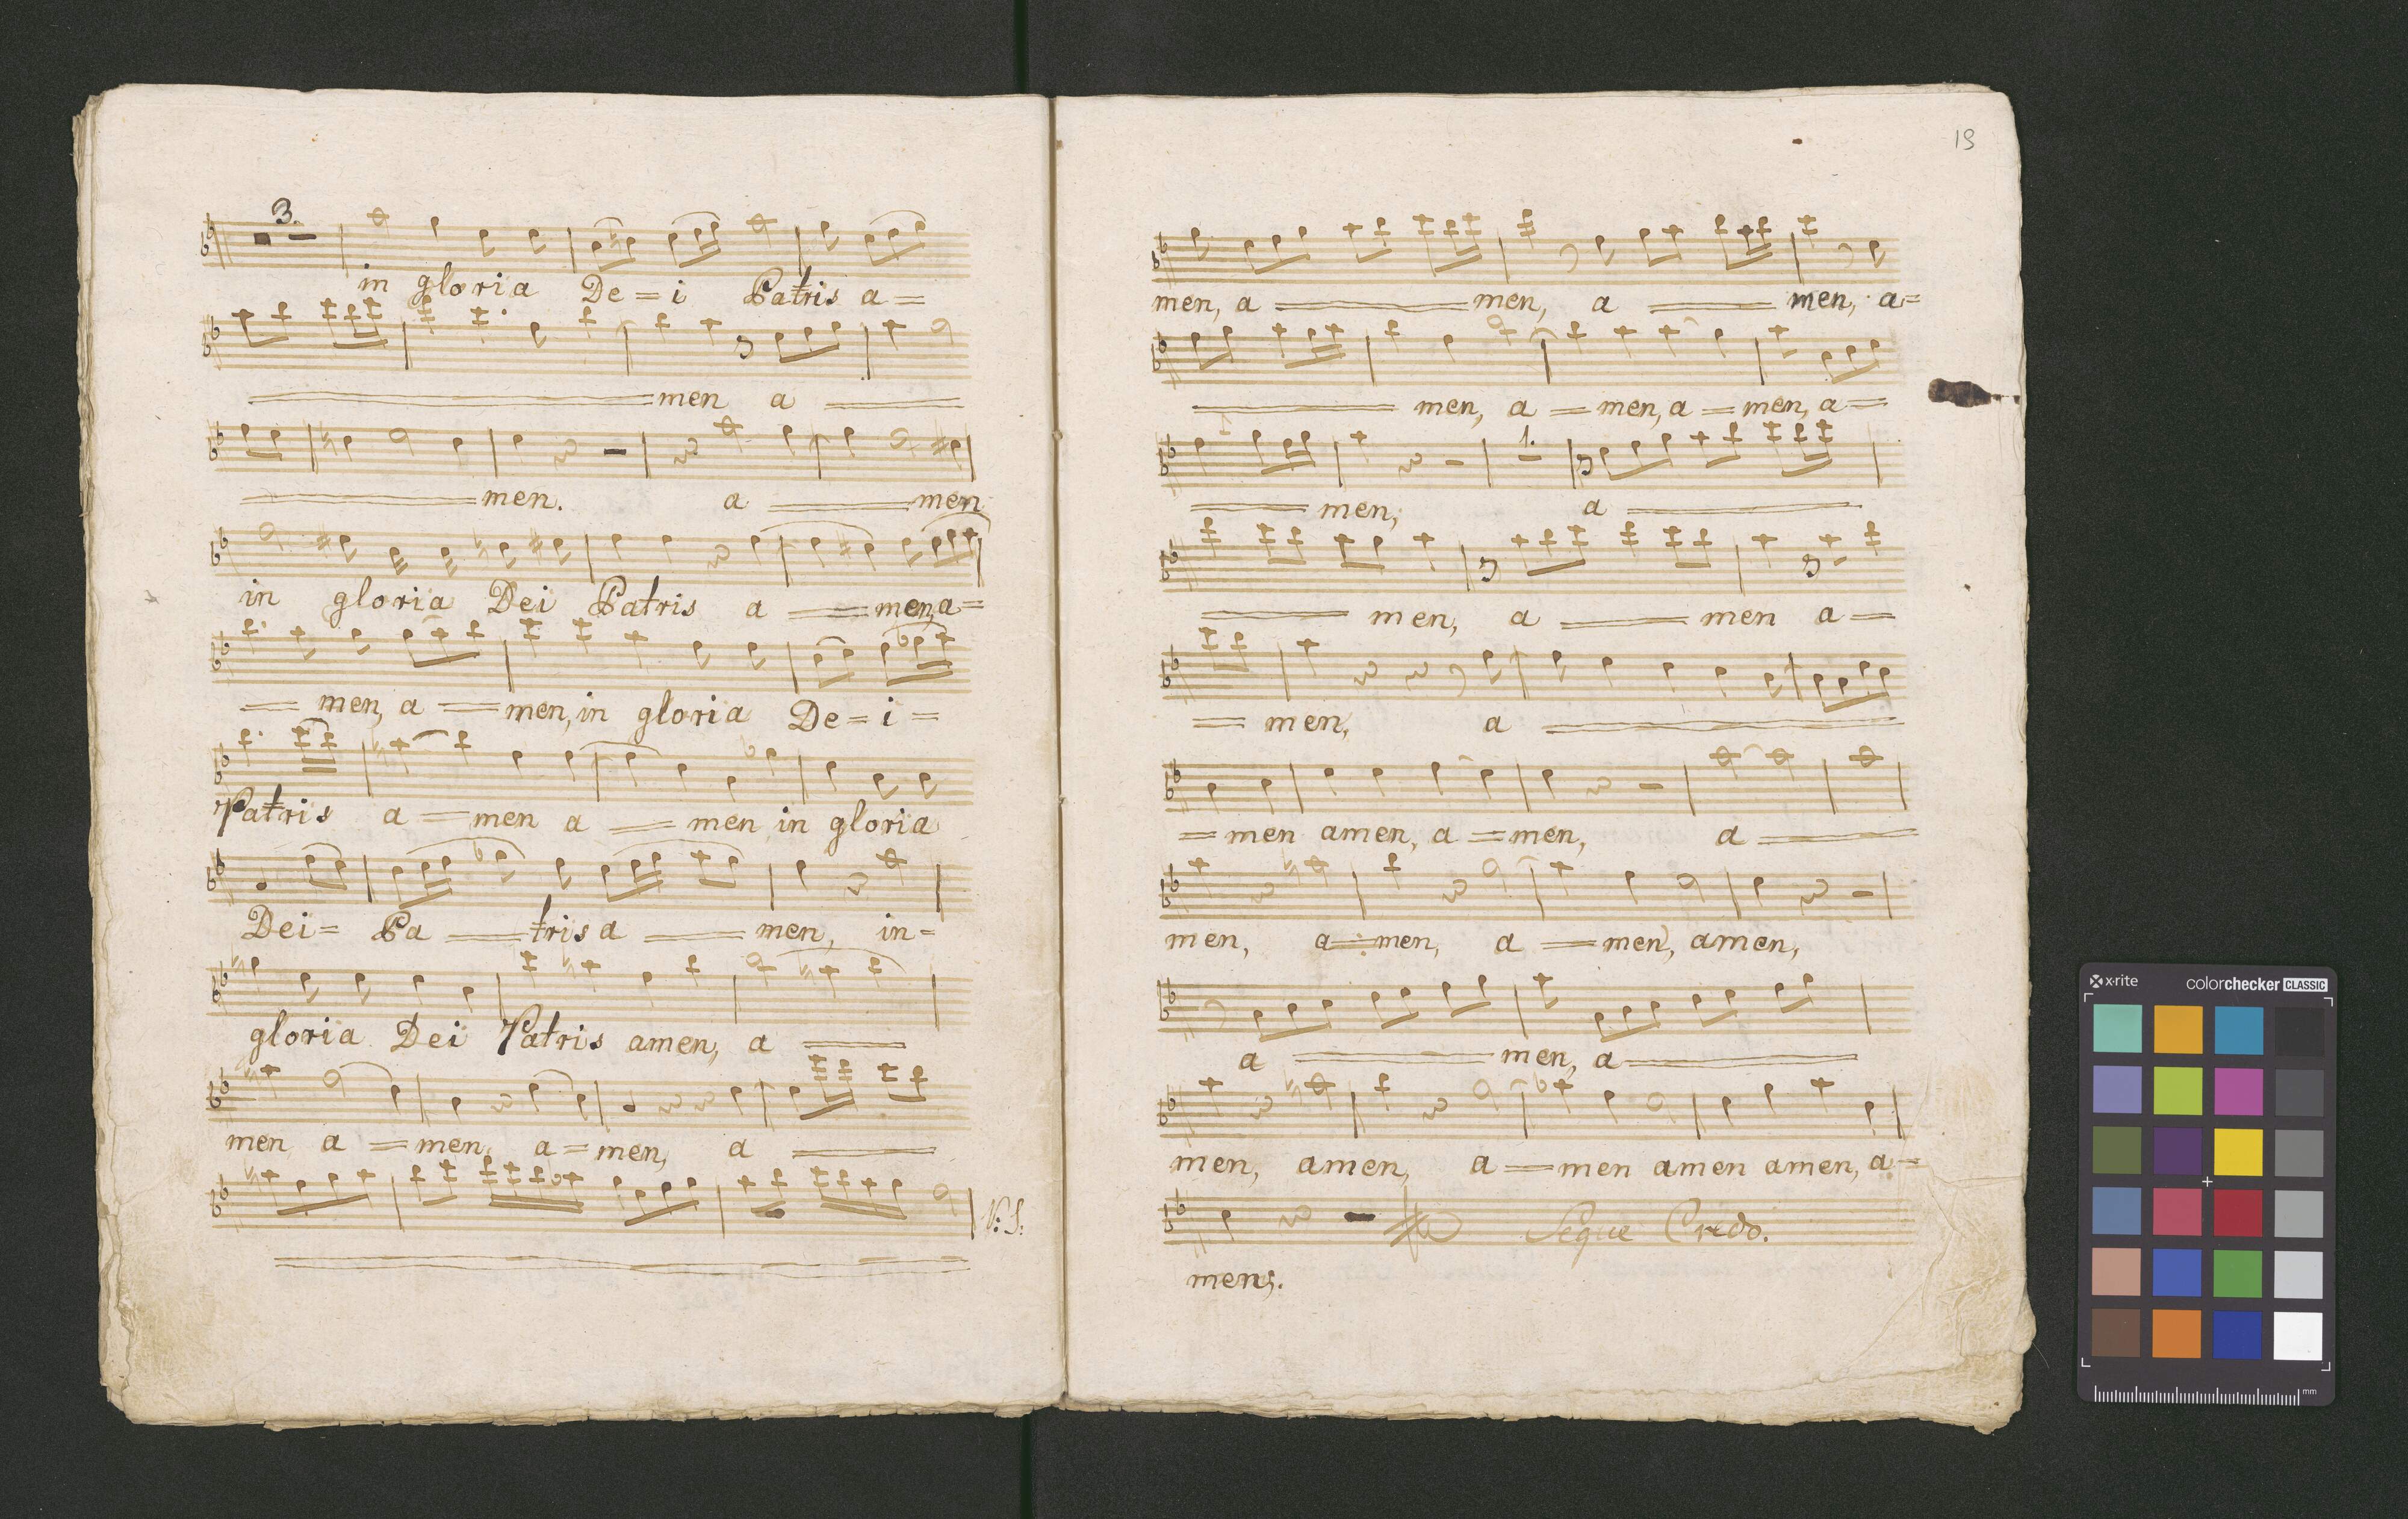 3.
in gloria De=i Patris a=
men a
men. a men
in gloria Dei Patris a men, a=
men, a men, in gloria De=i=
Patris a men a men in gloria
Dei= Pa tris a men, in-
gloria Dei Patris amen, a
men a = men, a = men, a
V: S.
13
men, a men, a men, a=
men, a = men, a = men, a =
1.
men, a
men, a men a =
men, a
= men amen, a = men, a
men, a men, a men, amen,
a men, a
men, amen, a men amen amen, a=
Seque Credo.
mens.
x-rite colorchecker CLASSIC
mm